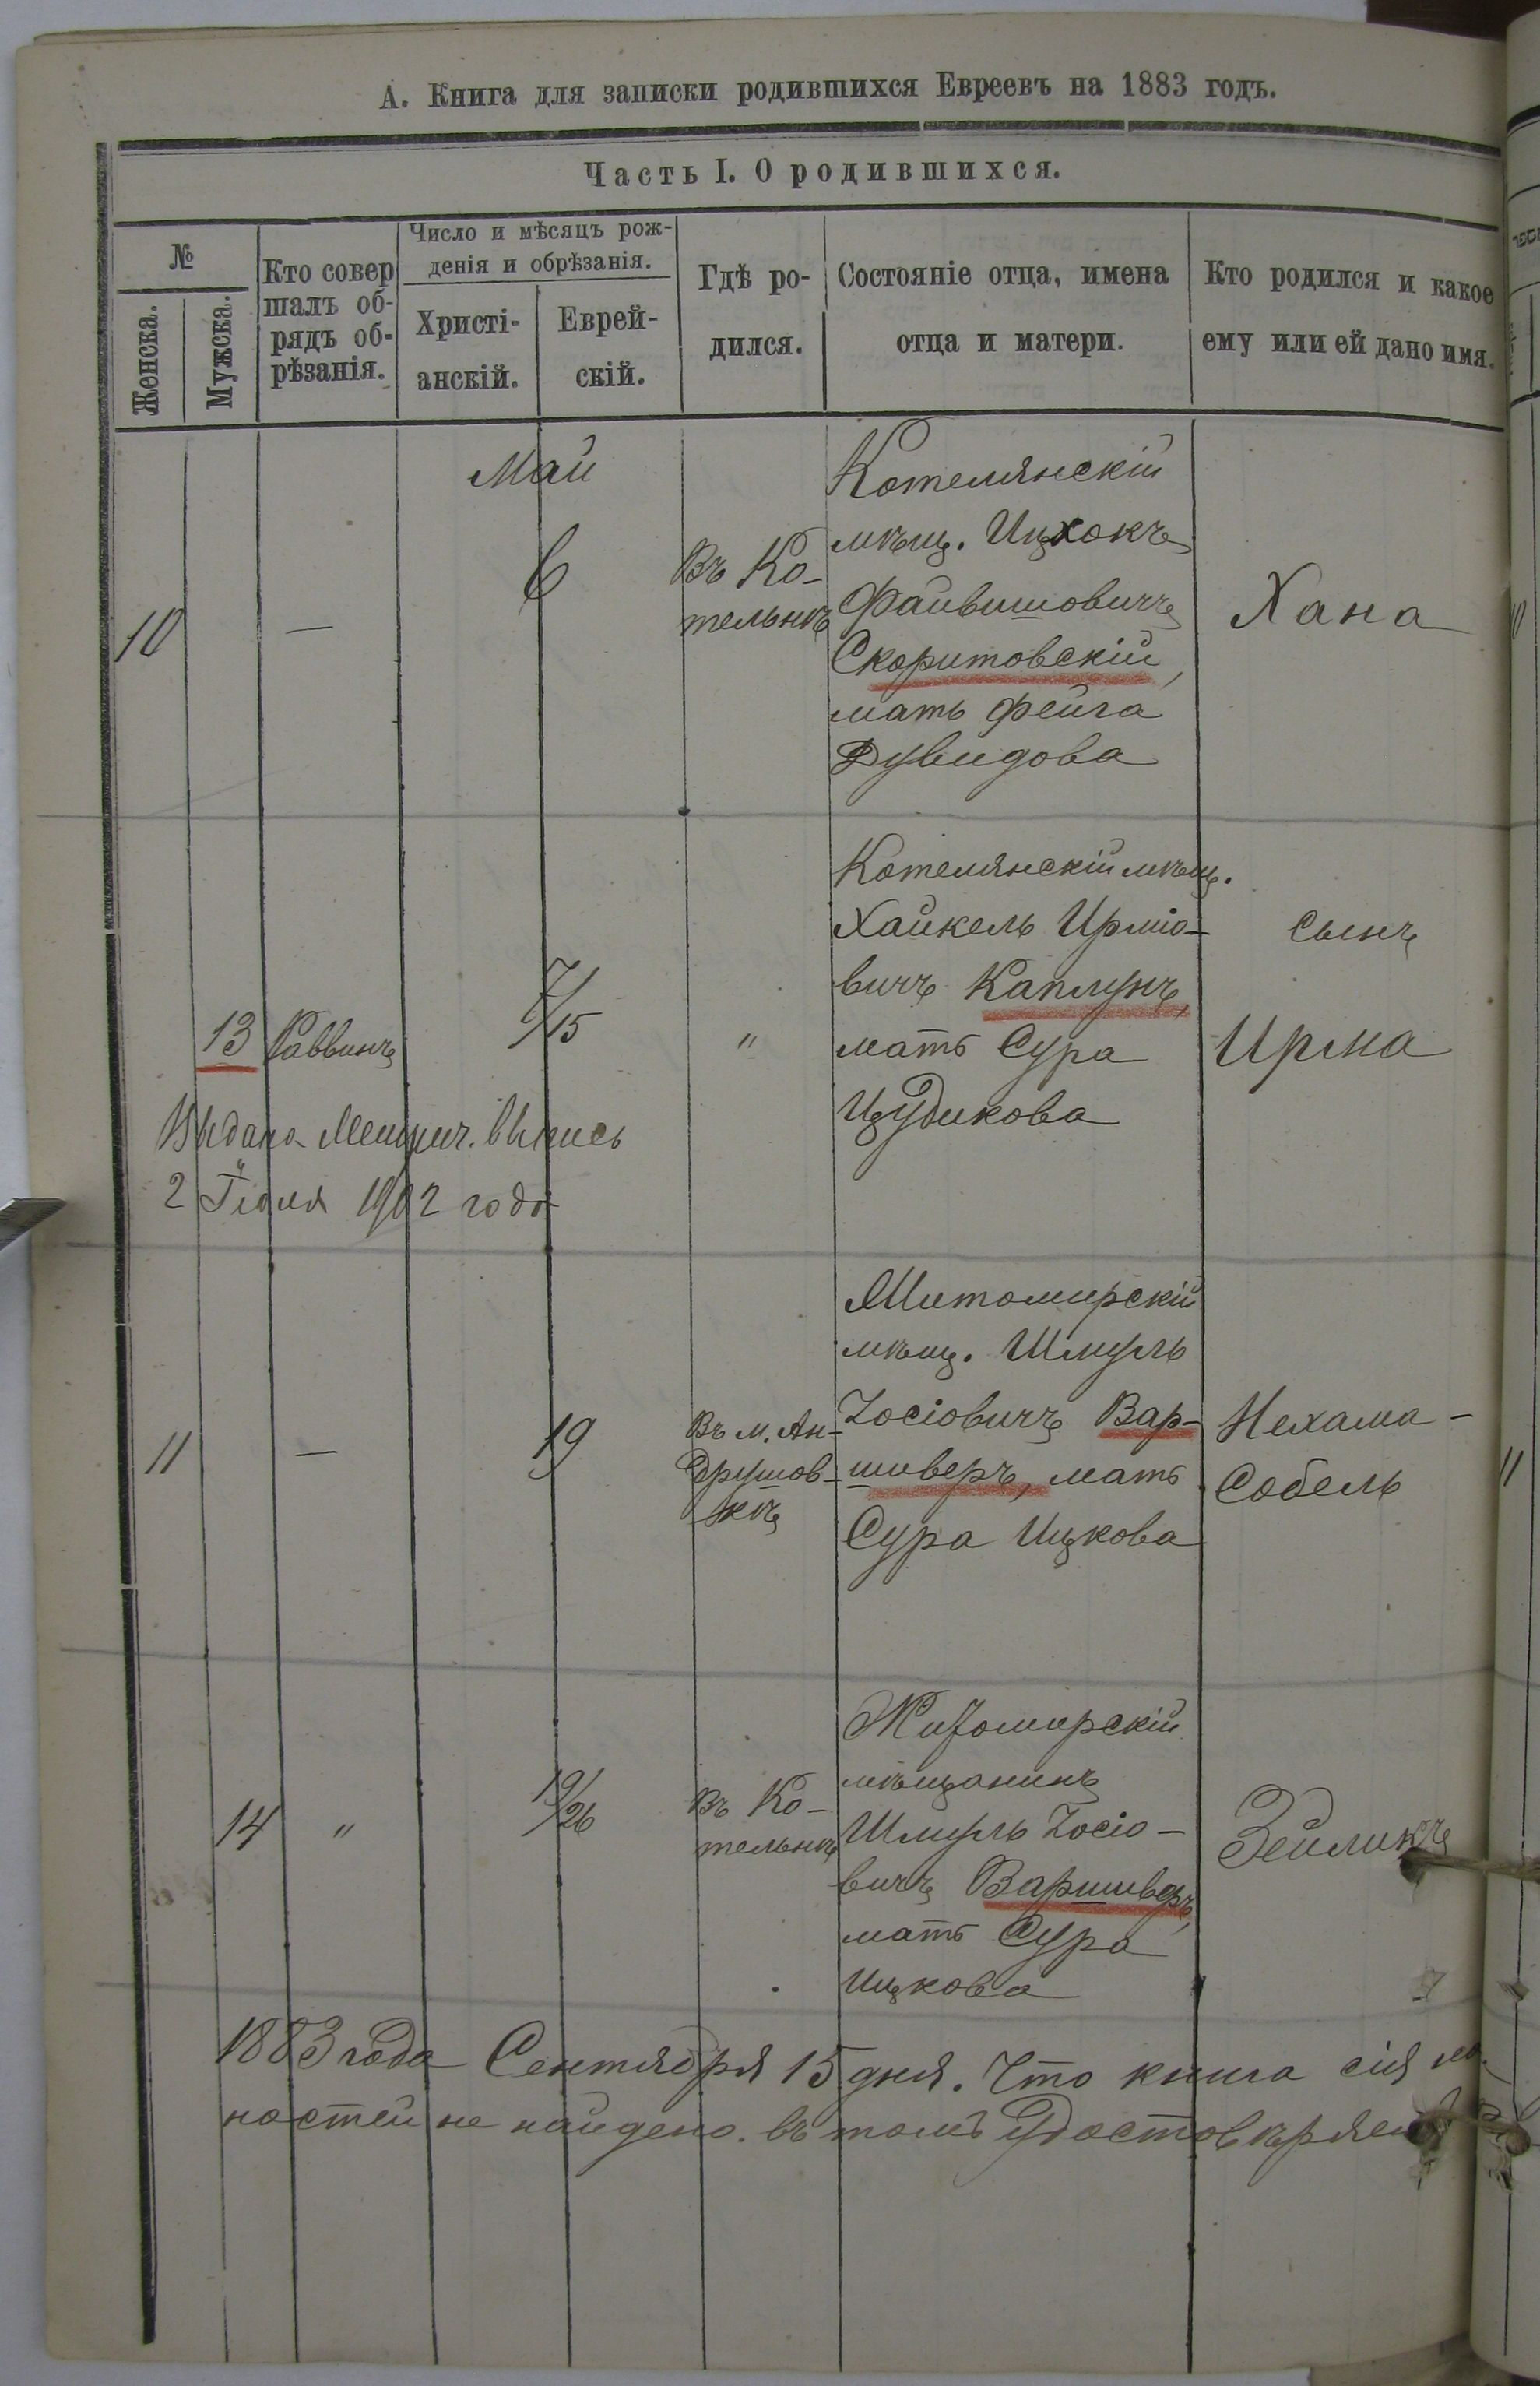 А. Книга для записки родившихся Евреевъ на 1883 годъ.
Часть I. О родившихся.
№
Женска.
Мужска.
Кто совер
шалъ об-
рядъ об-
рѣзанія.
Число и мѣсяцъ рож-
денія и обрѣзанія.
Христі-
анскій.
Еврей-
скій.
Гдѣ ро-
дился.
Состояніе отца, имена
отца и матери.
Кто родился и какое
ему или ей дано имя.
Май
10
—
6
Въ Ко-
тельнѣ
Котелянскій
мѣщ. Ицхокъ
Файвишовичъ
Скоритовскій,
мать Фейга
Дувидова
Хана
13
Раввинъ
7/15
"
Котелянскій мѣщ.
Хайкель Ирміо-
вичъ Каплунъ,
мать Сура
Цудикова
Сынъ
Ирма
Выдана Метрич. выпись
2 Іюля 1902 года
11
—
19
Въ м. Ан-
друшов-
кѣ
Житомирскій
мѣщ. Шмуль
Іосіовичъ Вар-
шиверъ, мать
Сура Ицкова
Нехама-
Собель
14
"
19/26
Въ Ко-
тельнѣ
Житомирскій
мѣщанинъ
Шмуль Іосіо-
вичъ Варшиверъ,
мать Сура
Ицкова
Зейликъ
1883 года Сентября 15 дня. Что книга сія
ностей не найдено. въ томъ Удостовѣряемъ